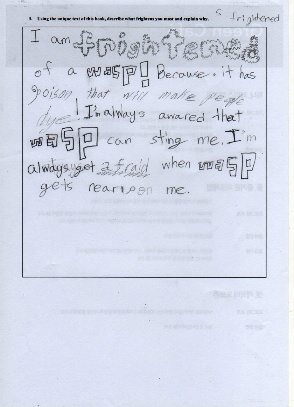 3. Using the unique text of this book, describe what frightens you most and explain why.
frightened
I am frightened
of a wasp! Because it has
poison that will make people
dye! I'm always awared that
wasp can sting me. I'm
always get afraid when wasp
gets near me.